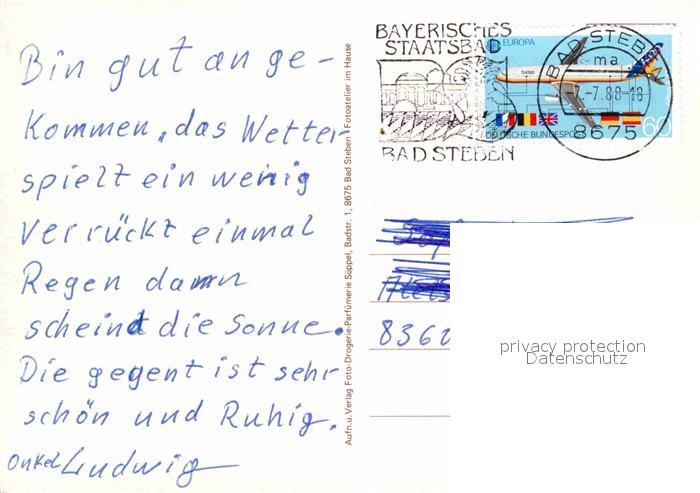 Bin gut an ge-
kommen, das Wetter
spielt ein wenig
verrückt einmal
Regen dann
scheint die Sonne.
Die gegent ist sehr
schön und Ruhig.
Onkel Ludwig
Aufn.u.Verlag Foto-Drogerie-Parfümerie Süppel, Badstr. 1, 8675 Bad Steben · Fotoatelier im Hause
BAYERISCHES
STAATSBAD
BAD STEBEN
EUROPA
DEUTSCHE BUNDESPOST
60
BAD STEBEN
ma
-7.-7.88-18
8675
8362
privacy protection
Datenschutz